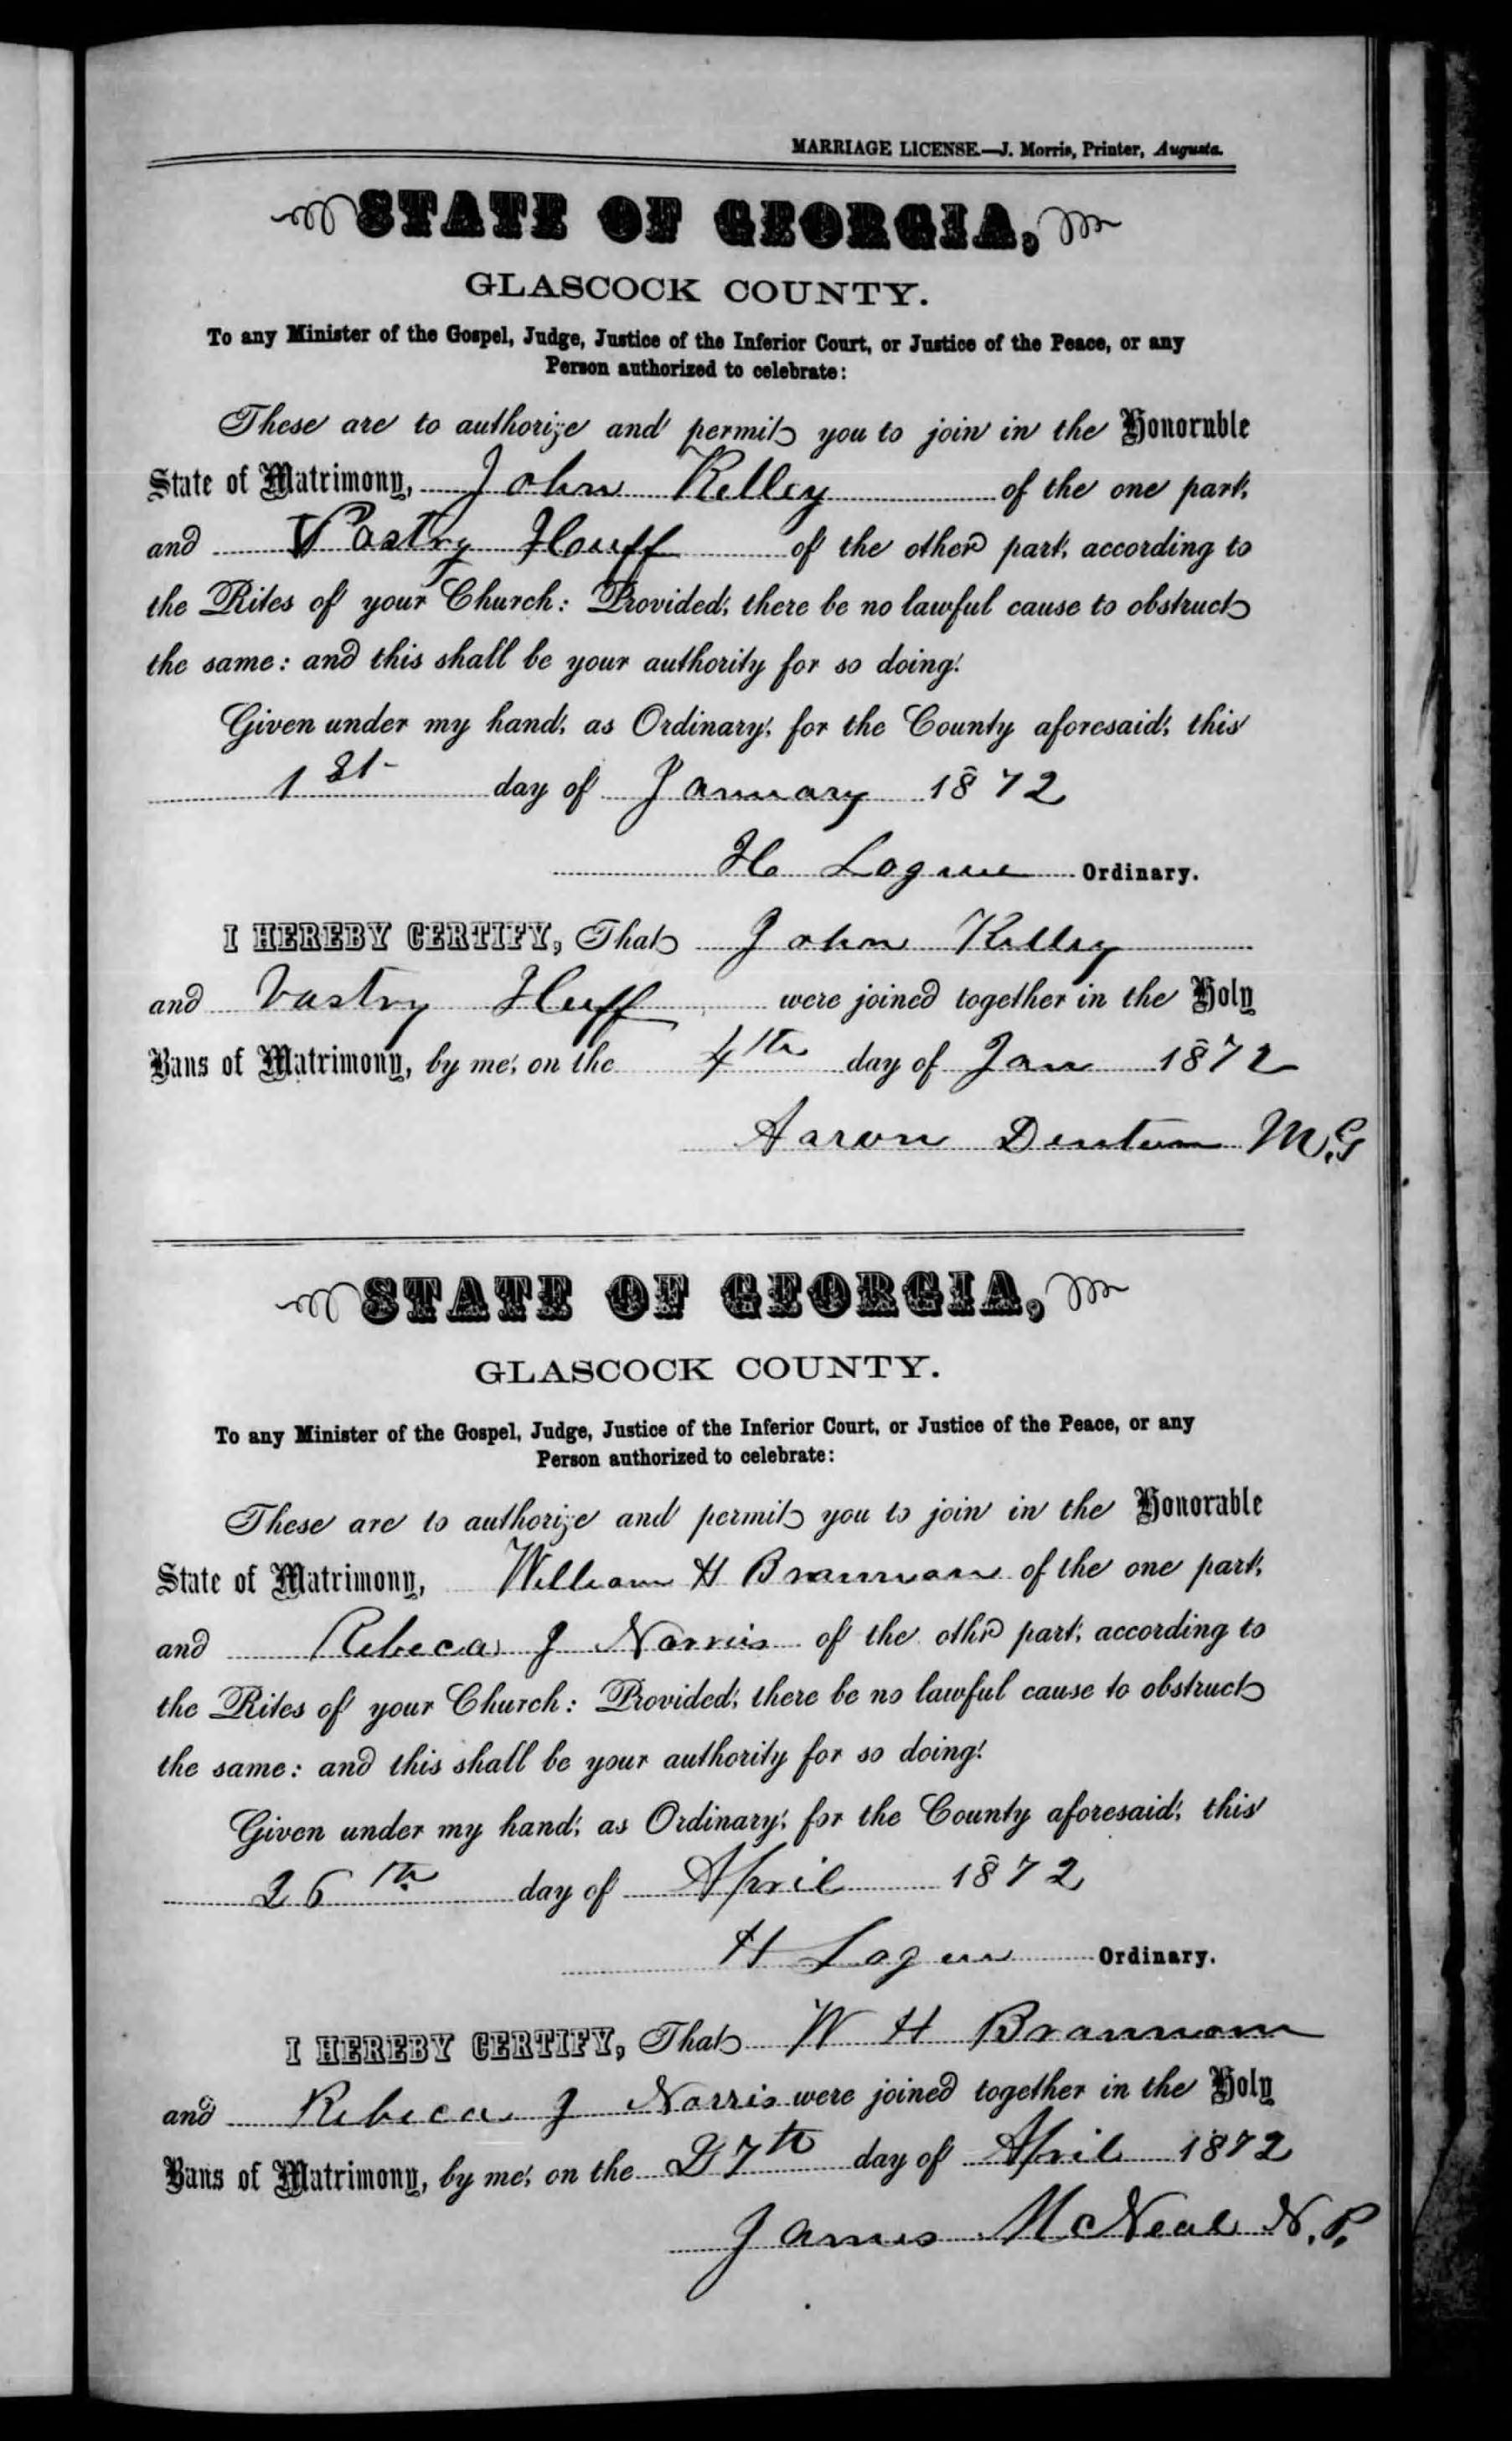 MARRIAGE LICENSE.—J. Morris, Printer, Augusta.
STATE OF GEORGIA,
GLASCOCK COUNTY.
To any Minister of the Gospel, Judge, Justice of the Inferior Court, or Justice of the Peace, or any
Person authorized to celebrate:
These are to authorize and permit you to join in the Honorable
State of Matrimony, John Kelley of the one part,
and Vastry Houff of the other part, according to
the Rites of your Church: Provided, there be no lawful cause to obstruct
the same: and this shall be your authority for so doing.
Given under my hand, as Ordinary, for the County aforesaid, this
1st day of January 1872
H Logue Ordinary.
I HEREBY CERTIFY, That John Kelley
and Vastry Huff were joined together in the Holy
Bans of Matrimony, by me, on the 4th day of Jan 1872
Aaron Denton M.G
STATE OF GEORGIA,
GLASCOCK COUNTY.
To any Minister of the Gospel, Judge, Justice of the Inferior Court, or Justice of the Peace, or any
Person authorized to celebrate:
These are to authorize and permit you to join in the Honorable
State of Matrimony, William H Brannan of the one part,
and Rebeca J Norris of the othr part, according to
the Rites of your Church: Provided, there be no lawful cause to obstruct
the same: and this shall be your authority for so doing.
Given under my hand, as Ordinary, for the County aforesaid, this
26th day of April 1872
H Logue Ordinary.
I HEREBY CERTIFY, That W H Brannan
and Rebeca J Norris were joined together in the Holy
Bans of Matrimony, by me, on the 27th day of April 1872
James McNeal N.P.